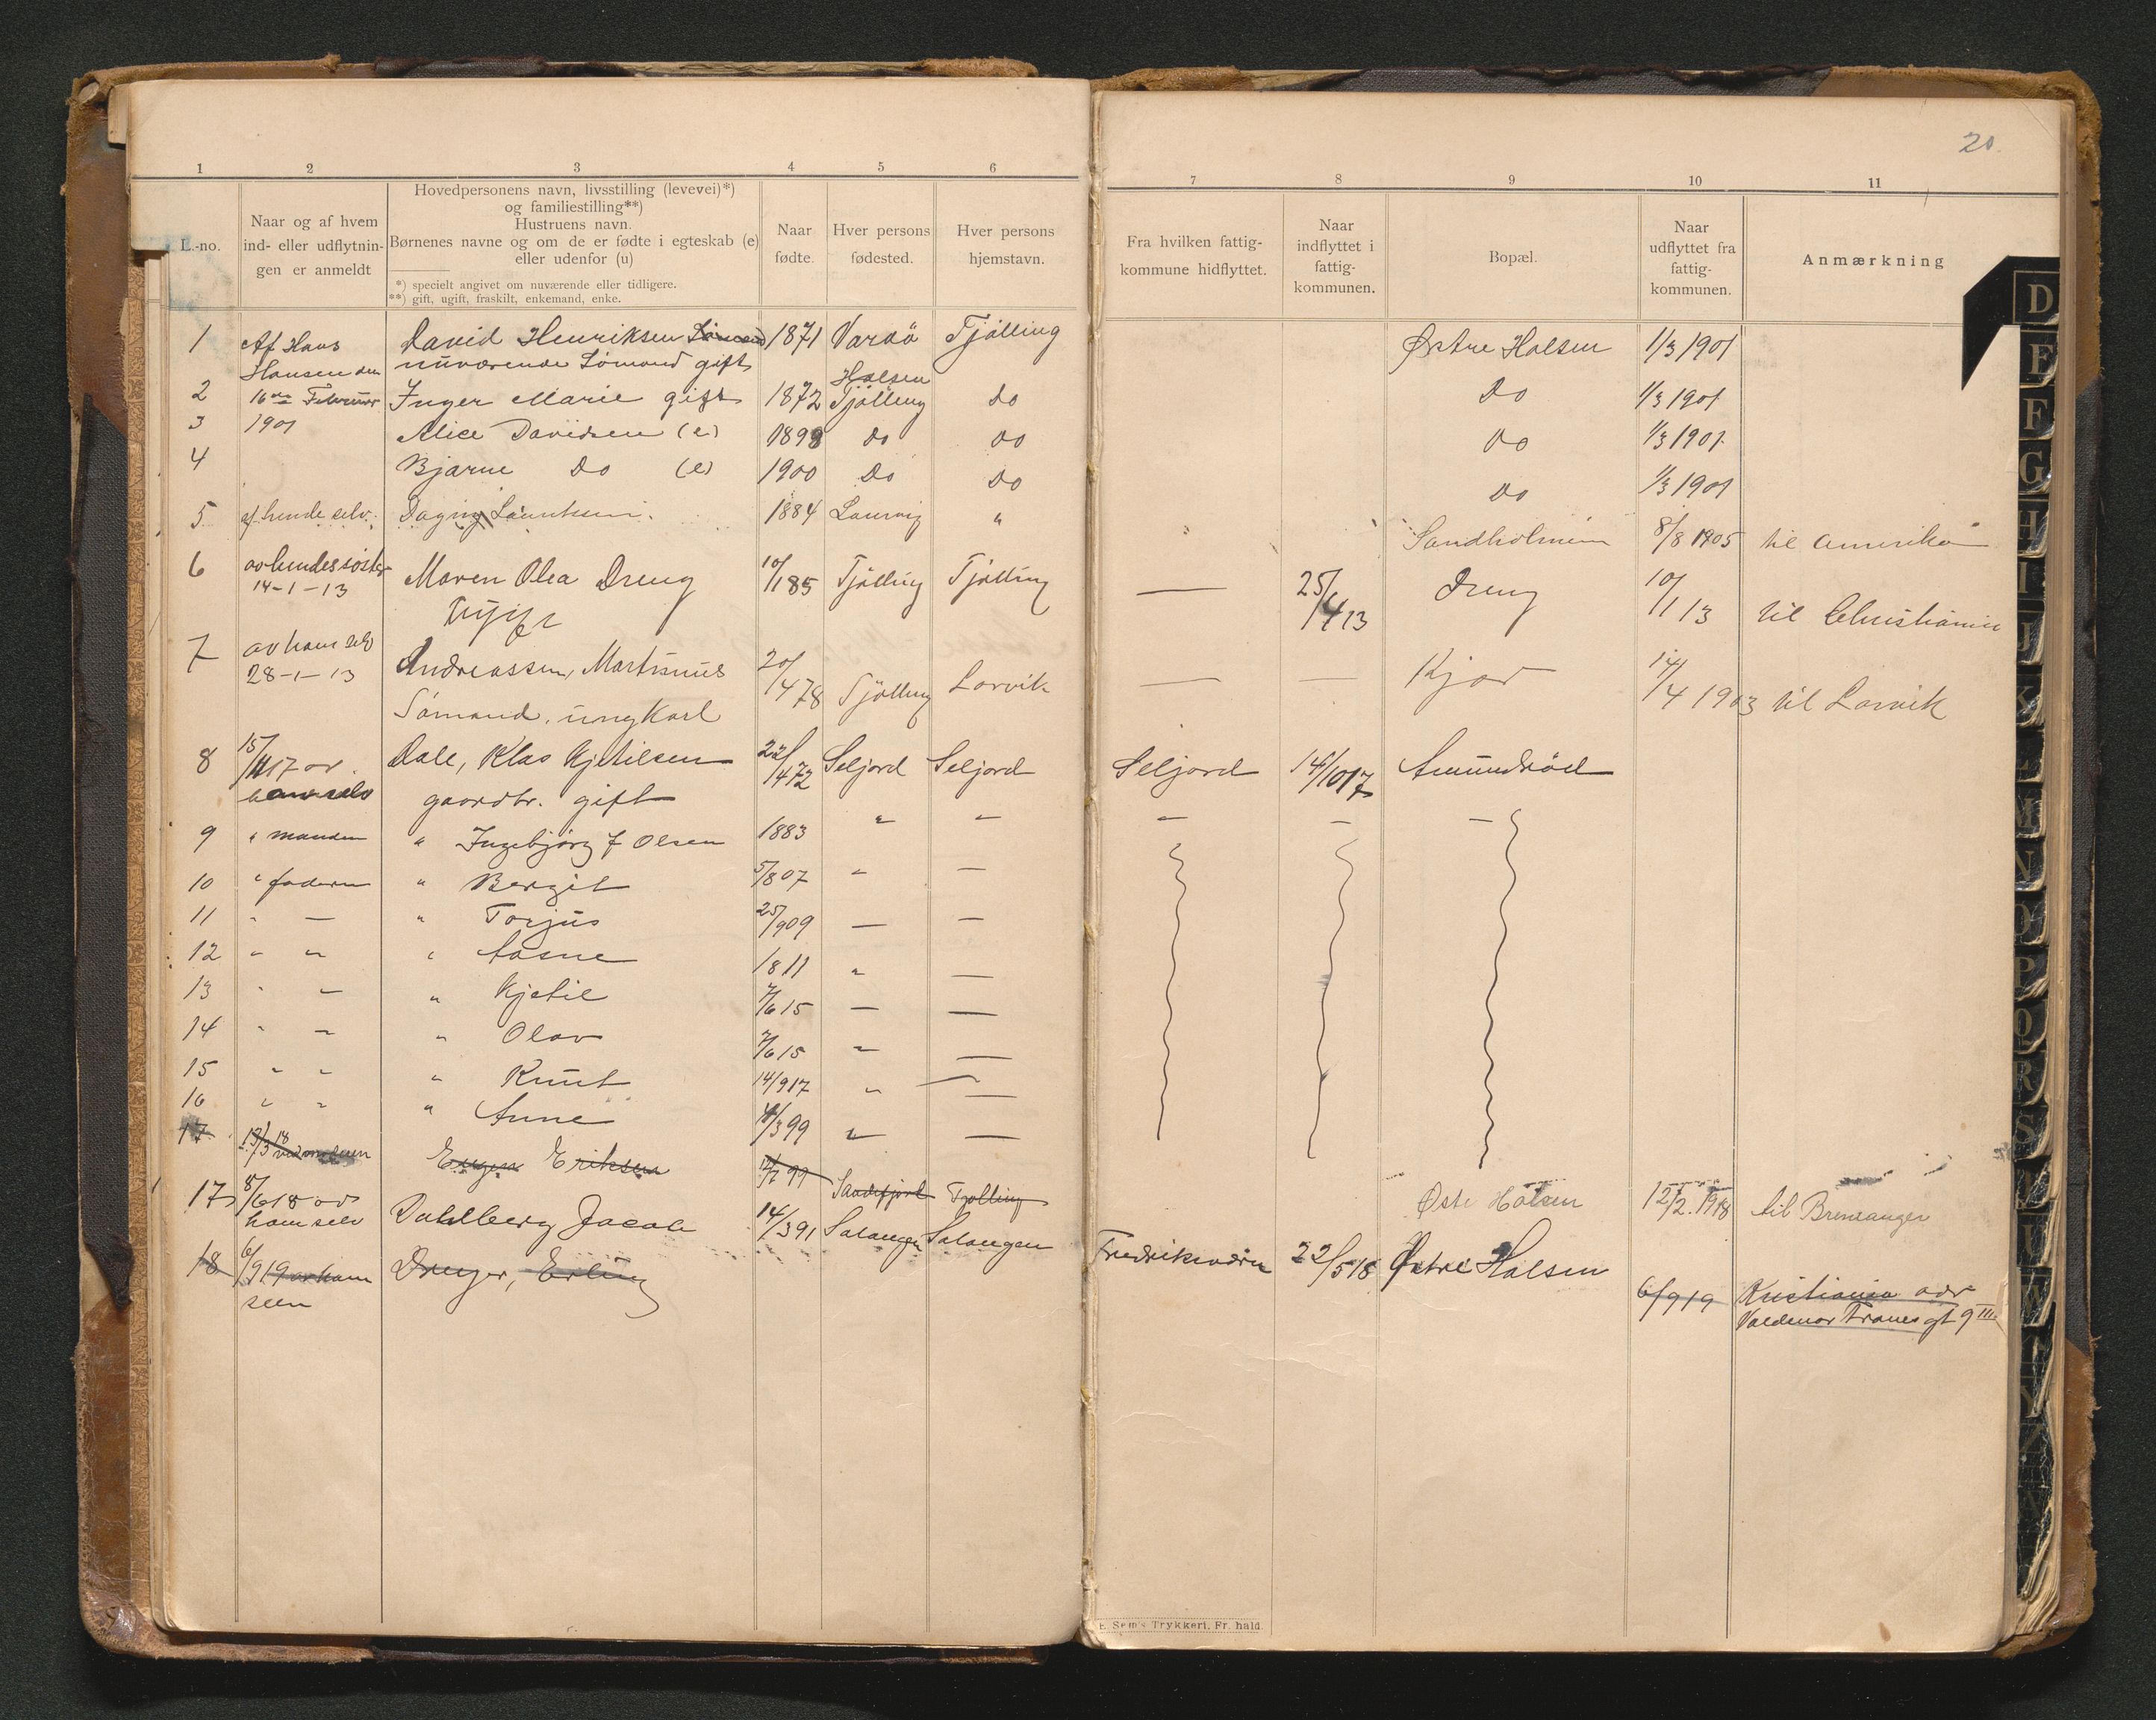 20
1 2 3 4 5 6 7 8 9 10 11
L.-no.
Naar og af hvem
ind- eller udflytnin-
gen er anmeldt
Hovedpersonens navn, livsstilling (levevei)*)
og familiestilling**)
Hustruens navn.
Børnenes navne og om de er fødte i egteskab (e)
eller udenfor (u)
*) specielt angivet om nuværende eller tidligere.
**) gift, ugift, fraskilt, enkemand, enke.
Naar
fødte.
Hver persons
fødested.
Hver persons
hjemstavn.
Fra hvilken fattig-
kommune hidflyttet.
Naar
indflyttet i
fattig-
kommunen.
Bopæl.
Naar
udflyttet fra
fattig-
kommunen.
Anmærkning
1 Af Hans David Henriksen 1871 Vardö Tjølling Østre Halsen 1/3 1901
Hansen den nuværende Sømand gift
Halsen
2 16de Februar Inger Marie gift 1872 Tjølling do Do 1/3 1901
3 1901 Alice Davidsen (e) 1898 do do do 1/3 1901
4 Bjarne Do (e) 1900 Do Do Do 1/3 1901
5 af hende selv. Dagny 1884 Laurvig " Sandholmen 8/8 1905 til Amerika
6 av hendes søster Maren Olea Dreng 10/1 85 Tjølling Tjølling — 25/4 13 Dreng 10/1 13 til Christiania
14-1-13 ugift
7 av ham selv Andreassen, Martinus 20/4 78 Tjølling Larvik — — Kjær 14/4 1903 til Larvik
28-1-13 Sømand. ungkarl
8 15/11 17 av Dale, Klas Kjetilsen 22/4 72 Seljord Seljord Seljord 14/10 17 Amundrød
ham selv gaardbr. gift
9 " manden " Ingebjørg f Olsen 1883 " — — — —
10 " faderen " Bergit 5/8 07 " —
11 " — " Torjus 25/9 09 — —
12 " " " Aasne 1811 " —
13 " — " Kjetil 7/6 15 — —
14 " — " Olav 7/6 15 " —
15 " " " Knut 14/9 17 " —
16 " " " Anne 4/3 99 " —
17 13/3 18 Eugen Eriksen 12/7 99 Sandefjord Tjølling Østr Halsen 12/2. 1918 til Bremanger
17 8/6 18 av Dahlberg Jacob 14/3 91 Salangen Salangen Fredriksværn 22/5 18 Østre Halsen
ham selv
18 6/9 19 av ham Drenger, Erling 6/9 19 Kristiania adr
selv Valdemar Tranes gt 9 III
E. Sem's Trykkeri, Fr. hald.
D
E
F
G
H
I
J
K
L
M
N
O
P
Q
R
S
U
W
Y
Z